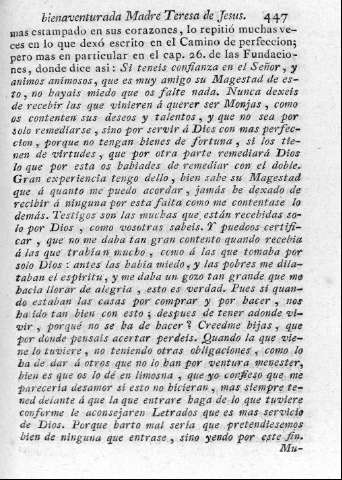 bienaventurada Madre Teresa de Jesus. 447
mas estampado en sus corazones, lo repitió muchas ve-
ces en lo que dexó escrito en el Camino de perfeccion;
pero mas en particular en el cap. 26. de las Fundacio-
nes, donde dice asi: Si teneis confianza en el Señor, y
animos animosos, que es muy amigo su Magestad de es-
to, no hayais miedo que os falte nada. Nunca dexeis
de recebir las que vinieren á querer ser Monjas, como
os contenten sus deseos y talentos, y que no sea por
solo remediarse, sino por servir á Dios con mas perfec-
cion, porque no tengan bienes de fortuna, si los tie-
nen de virtudes, que por otra parte remediará Dios
lo que por esta os habiades de remediar con el doble.
Gran experiencia tengo dello, bien sabe su Magestad
que á quanto me puedo acordar, jamás he dexado de
recibir á ninguna por esta falta como me contentase lo
demás. Testigos son las muchas que están recebidas so-
lo por Dios, como vosotras sabeis. Y puedoos certifi-
car, que no me daba tan gran contento quando recebia
á las que traían mucho, como á las que tomaba por
solo Dios: antes las habia miedo, y las pobres me dila-
taban el espiritu, y me daba un gozo tan grande que me
hacia llorar de alegria, esto es verdad. Pues si quan-
do estaban las casas por comprar y por hacer, nos
ha ido tan bien con esto; despues de tener adonde vi-
vir, porqué no se ha de hacer? Creedme hijas, que
por donde pensais acertar perdeis. Quando la que vie-
ne lo tuviere, no teniendo otras obligaciones, como lo
ha de dar á otros que no lo han por ventura menester,
bien es que os lo dé en limosna, que yo confieso que me
pareceria desamor si esto no hicieran, mas siempre te-
ned delante á que la que entrare haga de lo que tuviere
conforme le aconsejaren Letrados que es mas servicio
de Dios. Porque harto mal seria que pretendiesemos
bien de ninguna que entrase, sino yendo por este fin.
Mu-